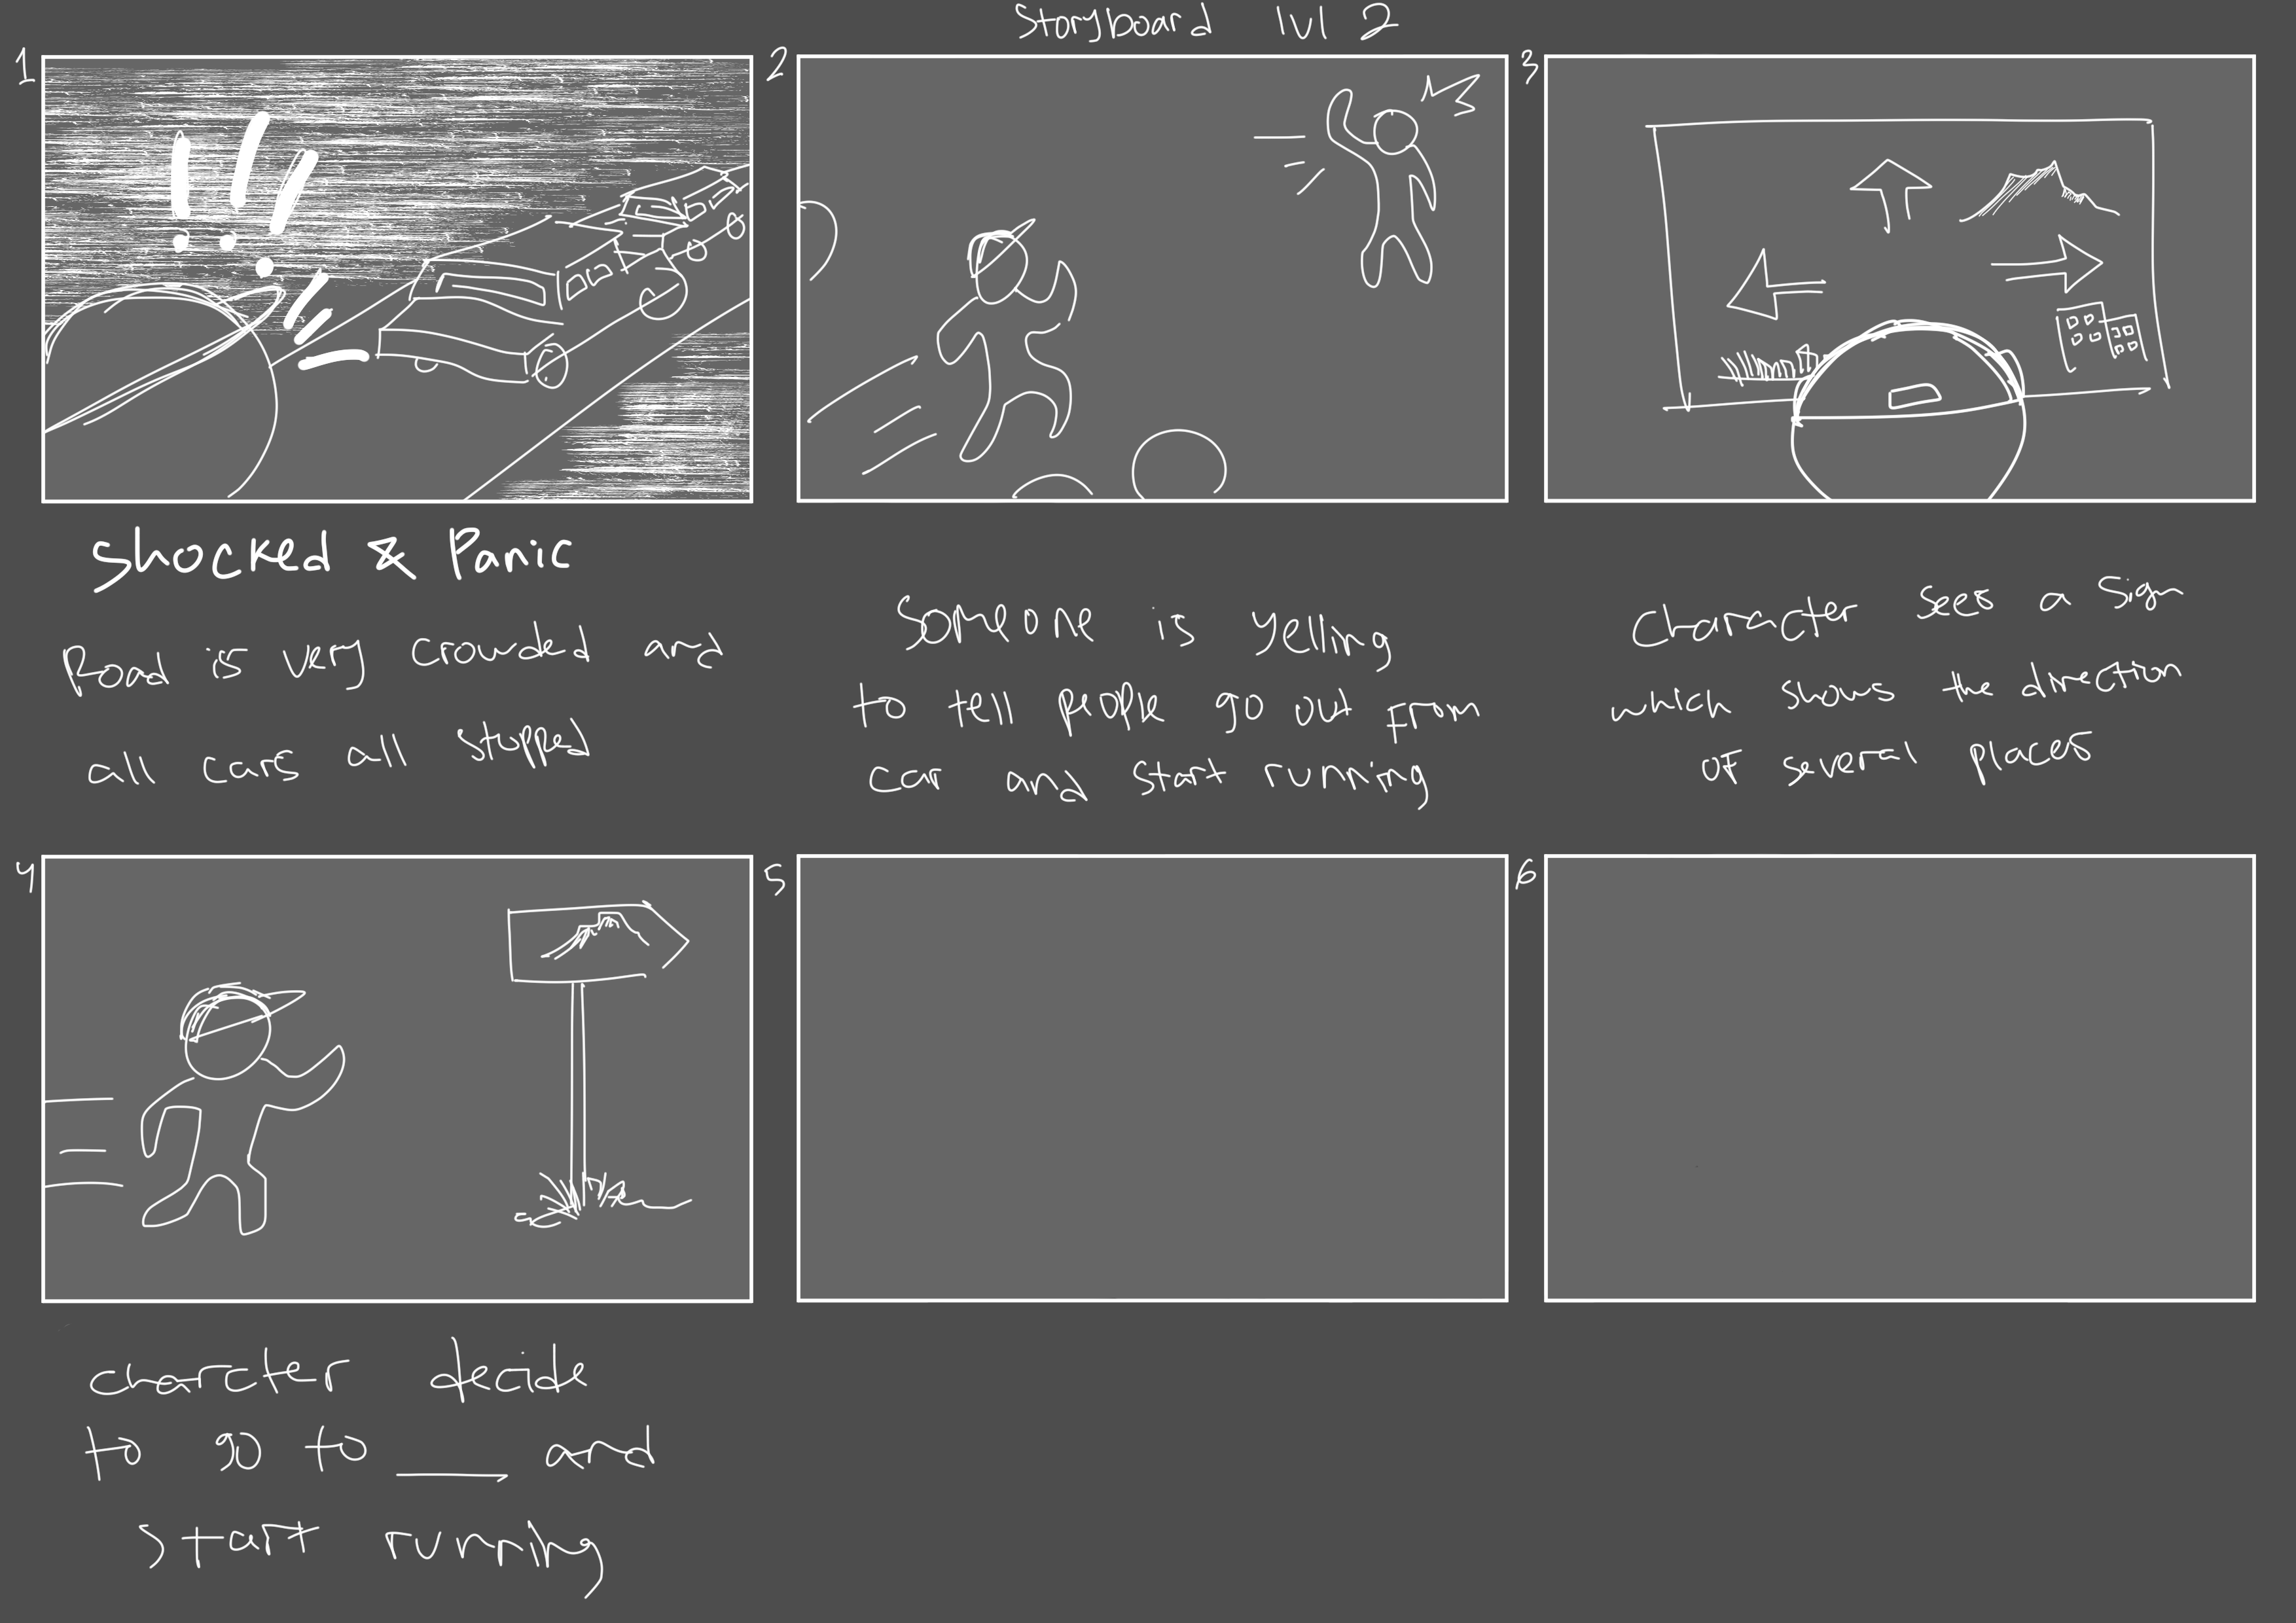 Storyboard lvl 2
1
2
3
Shocked & Panic
Road is very crowded and
all cars all stopped
Someone is yelling
to tell people go out from
car and start running
Character sees a sign
which shows the direction
of several places
4
5
6
charcter decide
to go to ____ and
start running